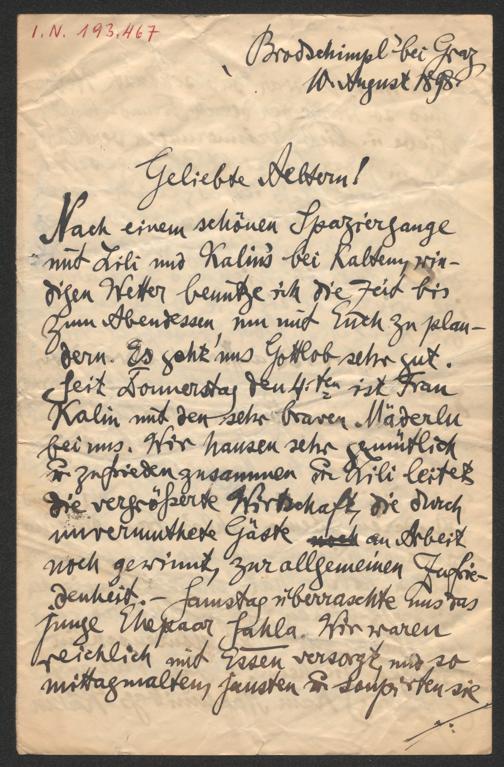 I.N. 193.467
Brodschimpl bei Graz
10. August 1898.
Geliebte Aeltern!
Nach einem schönen Spaziergange
mit Lili und Kalin's bei kaltem, win-
digen Wetter benütze ich die Zeit bis
zum Abendessen, um mit Euch zu plau-
dern. Es geht uns Gottlob sehr gut.
Seit Donnerstag den 4.ten ist Frau
Kalin mit den sehr braven Mäderln
bei uns. Wir hausen sehr gemütlich
u. zufrieden zusammen u. Lili leitet
die vergrößerte Wirtschaft, die durch
unvermuthete Gäste noch an Arbeit
noch gewinnt, zur allgemeinen Zufrie-
denheit. – Samstag überraschte uns das
junge Ehepaar Sahla. Wir waren
reichlich mit Essen versorgt, und so
mittagmalten, jausten u. soupirten sie